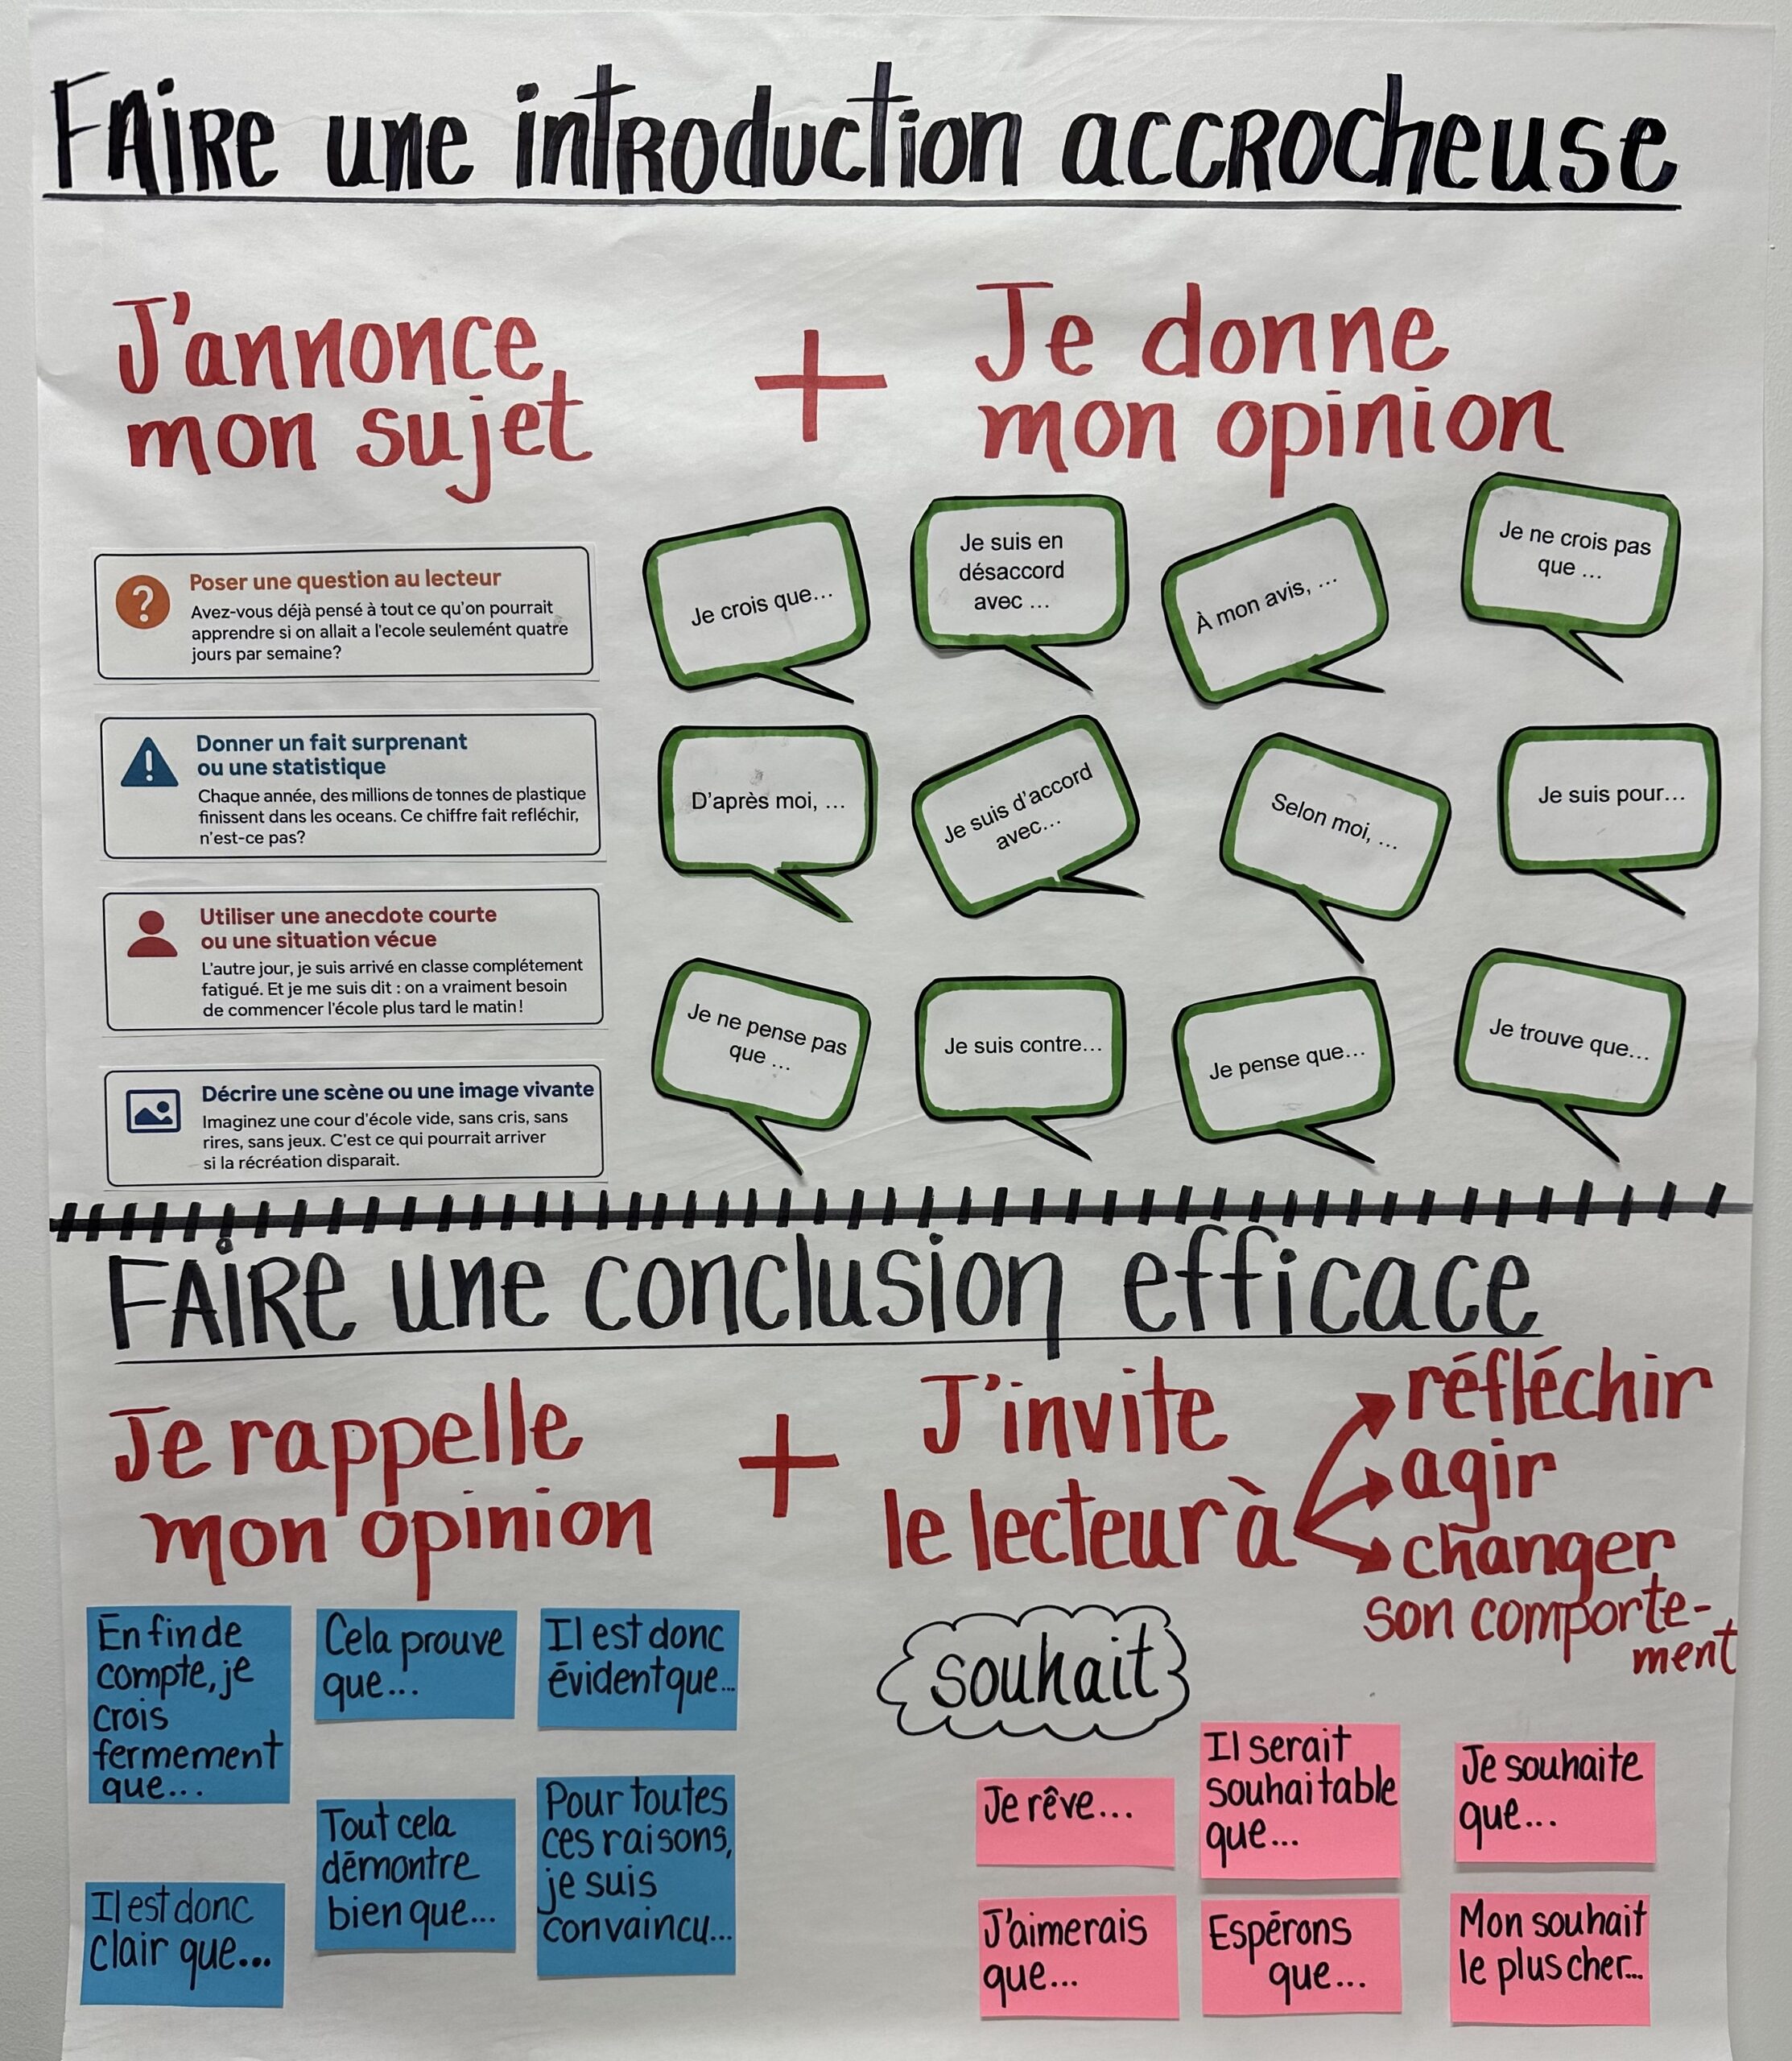 Faire une introduction accrocheuse
J'annonce
mon sujet
+
Je donne
mon opinion
Poser une question au lecteur
Avez-vous déjà pensé à tout ce qu'on pourrait
apprendre si on allait a l'ecole seulemént quatre
jours par semaine?
Donner un fait surprenant
ou une statistique
Chaque année, des millions de tonnes de plastique
finissent dans les oceans. Ce chiffre fait refléchir,
n'est-ce pas?
Utiliser une anecdote courte
ou une situation vécue
L'autre jour, je suis arrivé en classe complétement
fatigué. Et je me suis dit : on a vraiment besoin
de commencer l'école plus tard le matin!
Décrire une scène ou une image vivante
Imaginez une cour d'école vide, sans cris, sans
rires, sans jeux. C'est ce qui pourrait arriver
si la récréation disparait.
Je crois que...
Je suis en
désaccord
avec ...
À mon avis, ...
Je ne crois pas
que ...
D'après moi, ...
Je suis d'accord
avec...
Selon moi, ...
Je suis pour...
Je ne pense pas
que ...
Je suis contre...
Je pense que...
Je trouve que...
Faire une conclusion efficace
Je rappelle
mon opinion
+
J'invite
le lecteur à
réfléchir
agir
changer
son comporte-
ment
En fin de
compte, je
crois
fermement
que...
Cela prouve
que...
Il est donc
évident que...
Il est donc
clair que...
Tout cela
démontre
bien que...
Pour toutes
ces raisons,
je suis
convaincu...
souhait
Je rêve...
Il serait
souhaitable
que...
Je souhaite
que...
J'aimerais
que...
Espérons
que...
Mon souhait
le plus cher...